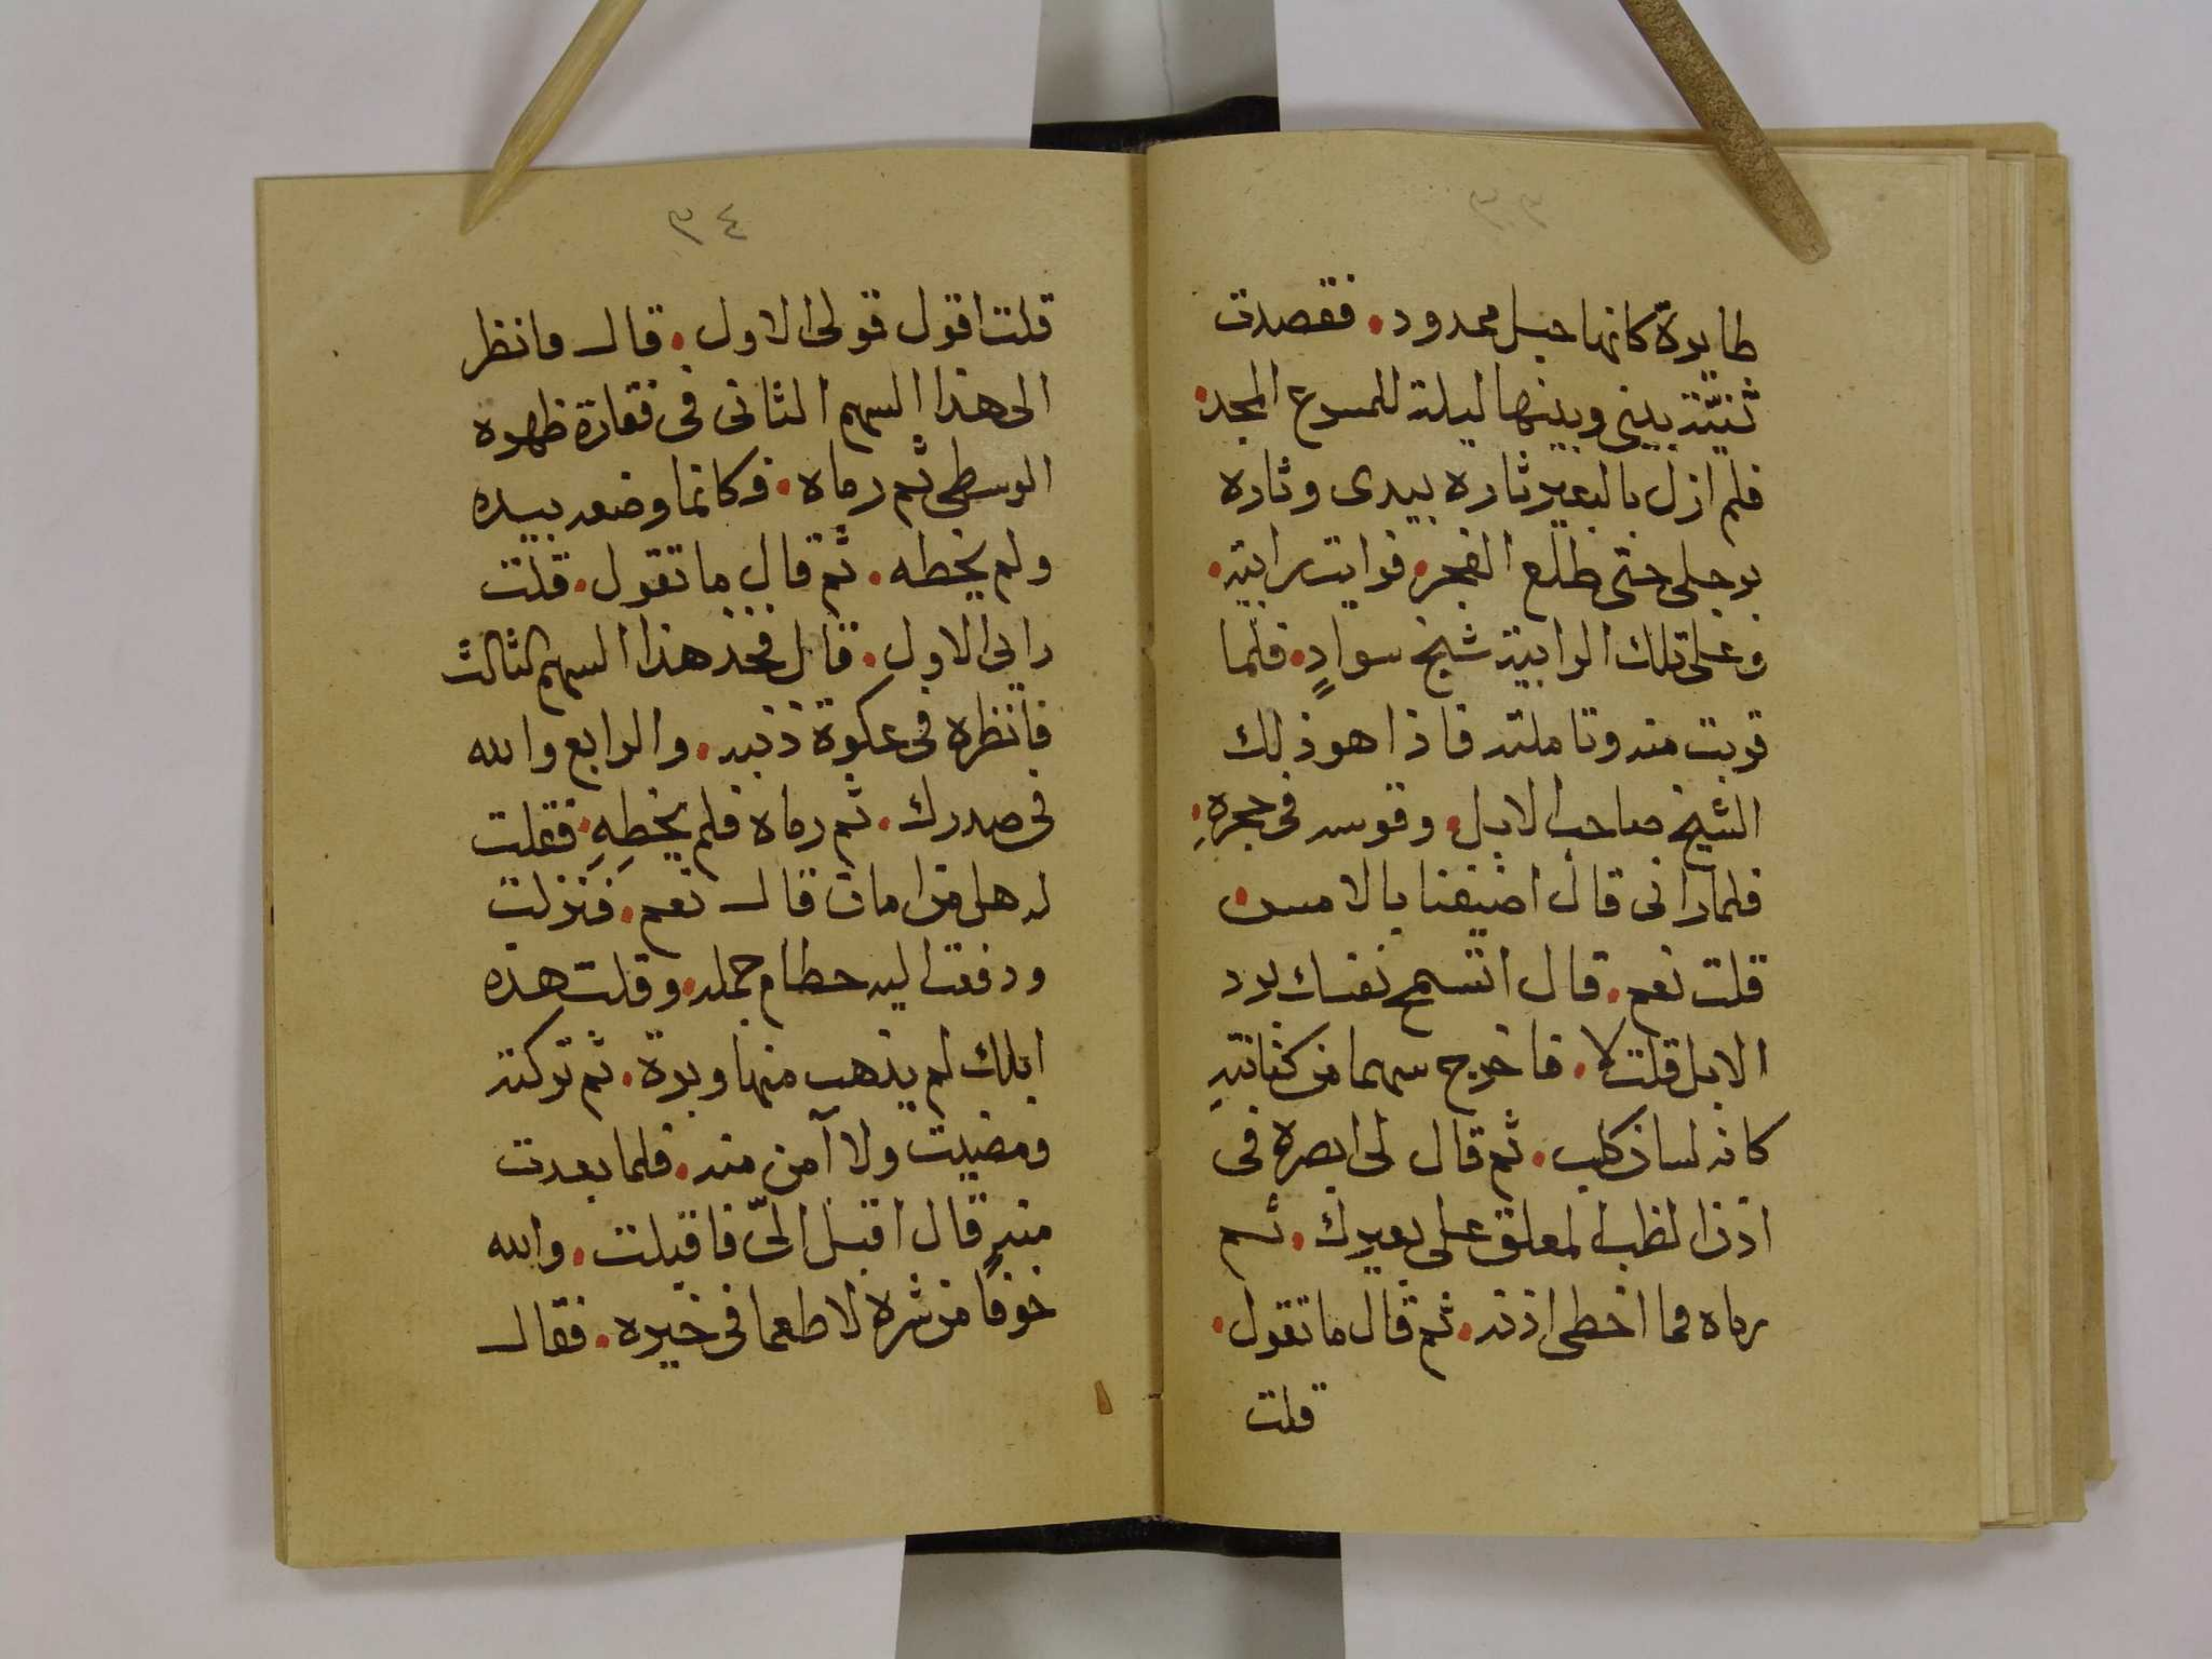 ٣٣
طايرة كانها حبل ممدود. فقصدت
ثنيّة بيني وبينها ليلة للمسرع المجد.
فلم ازل بالبعير ثارة بيدى وثارة
برجلى حتى طلع الفجر. فرايت رابية.
وعلى تلك الرابية شبح سوادٍ. فلما
قربت منه وتاملته فاذا هو ذلك
الشيخ صاحب الابل. وقوسه فى حجرهِ.
فلما رانى قال اضيفنا بالامس.
قلت نعم. قال اتسمح نفسك برد
الابل قلت لا. فاخرج سهما من كنانتهِ
كانه لسان كلب. ثم قال لى ابصره فى
اذن الظب المعلق على بعيرك. ثم
رماه فما اخطى اذنه. ثم قال ما تقول.
قلت
٣٤
قلت اقول قولى الاول. قال فانظر
الى هذا السهم الثانى فى فقارة ظهره
الوسطى ثم رماه. فكانما وضعه بيده
ولم يخطه. ثم قال ما تقول. قلت
رايى الاول. قال فخذ هذا السهم الثالث
فانظره فى عكوة ذنبه. والرابع والله
فى صدرك. ثم رماه فلم يخطِهِ. فقلت
له هل من امان قال نعم. فنزلت
ودفعت اليه حطام جمله. وقلت هذه
ابلك لم يذهب منها وبرة. ثم تركته
ومضيت ولا آمن منه. فلما بعدت
منهٍ قال اقبل الىّ فاقبلت. والله
خوفا من شره لا طعما فى خيره. فقال